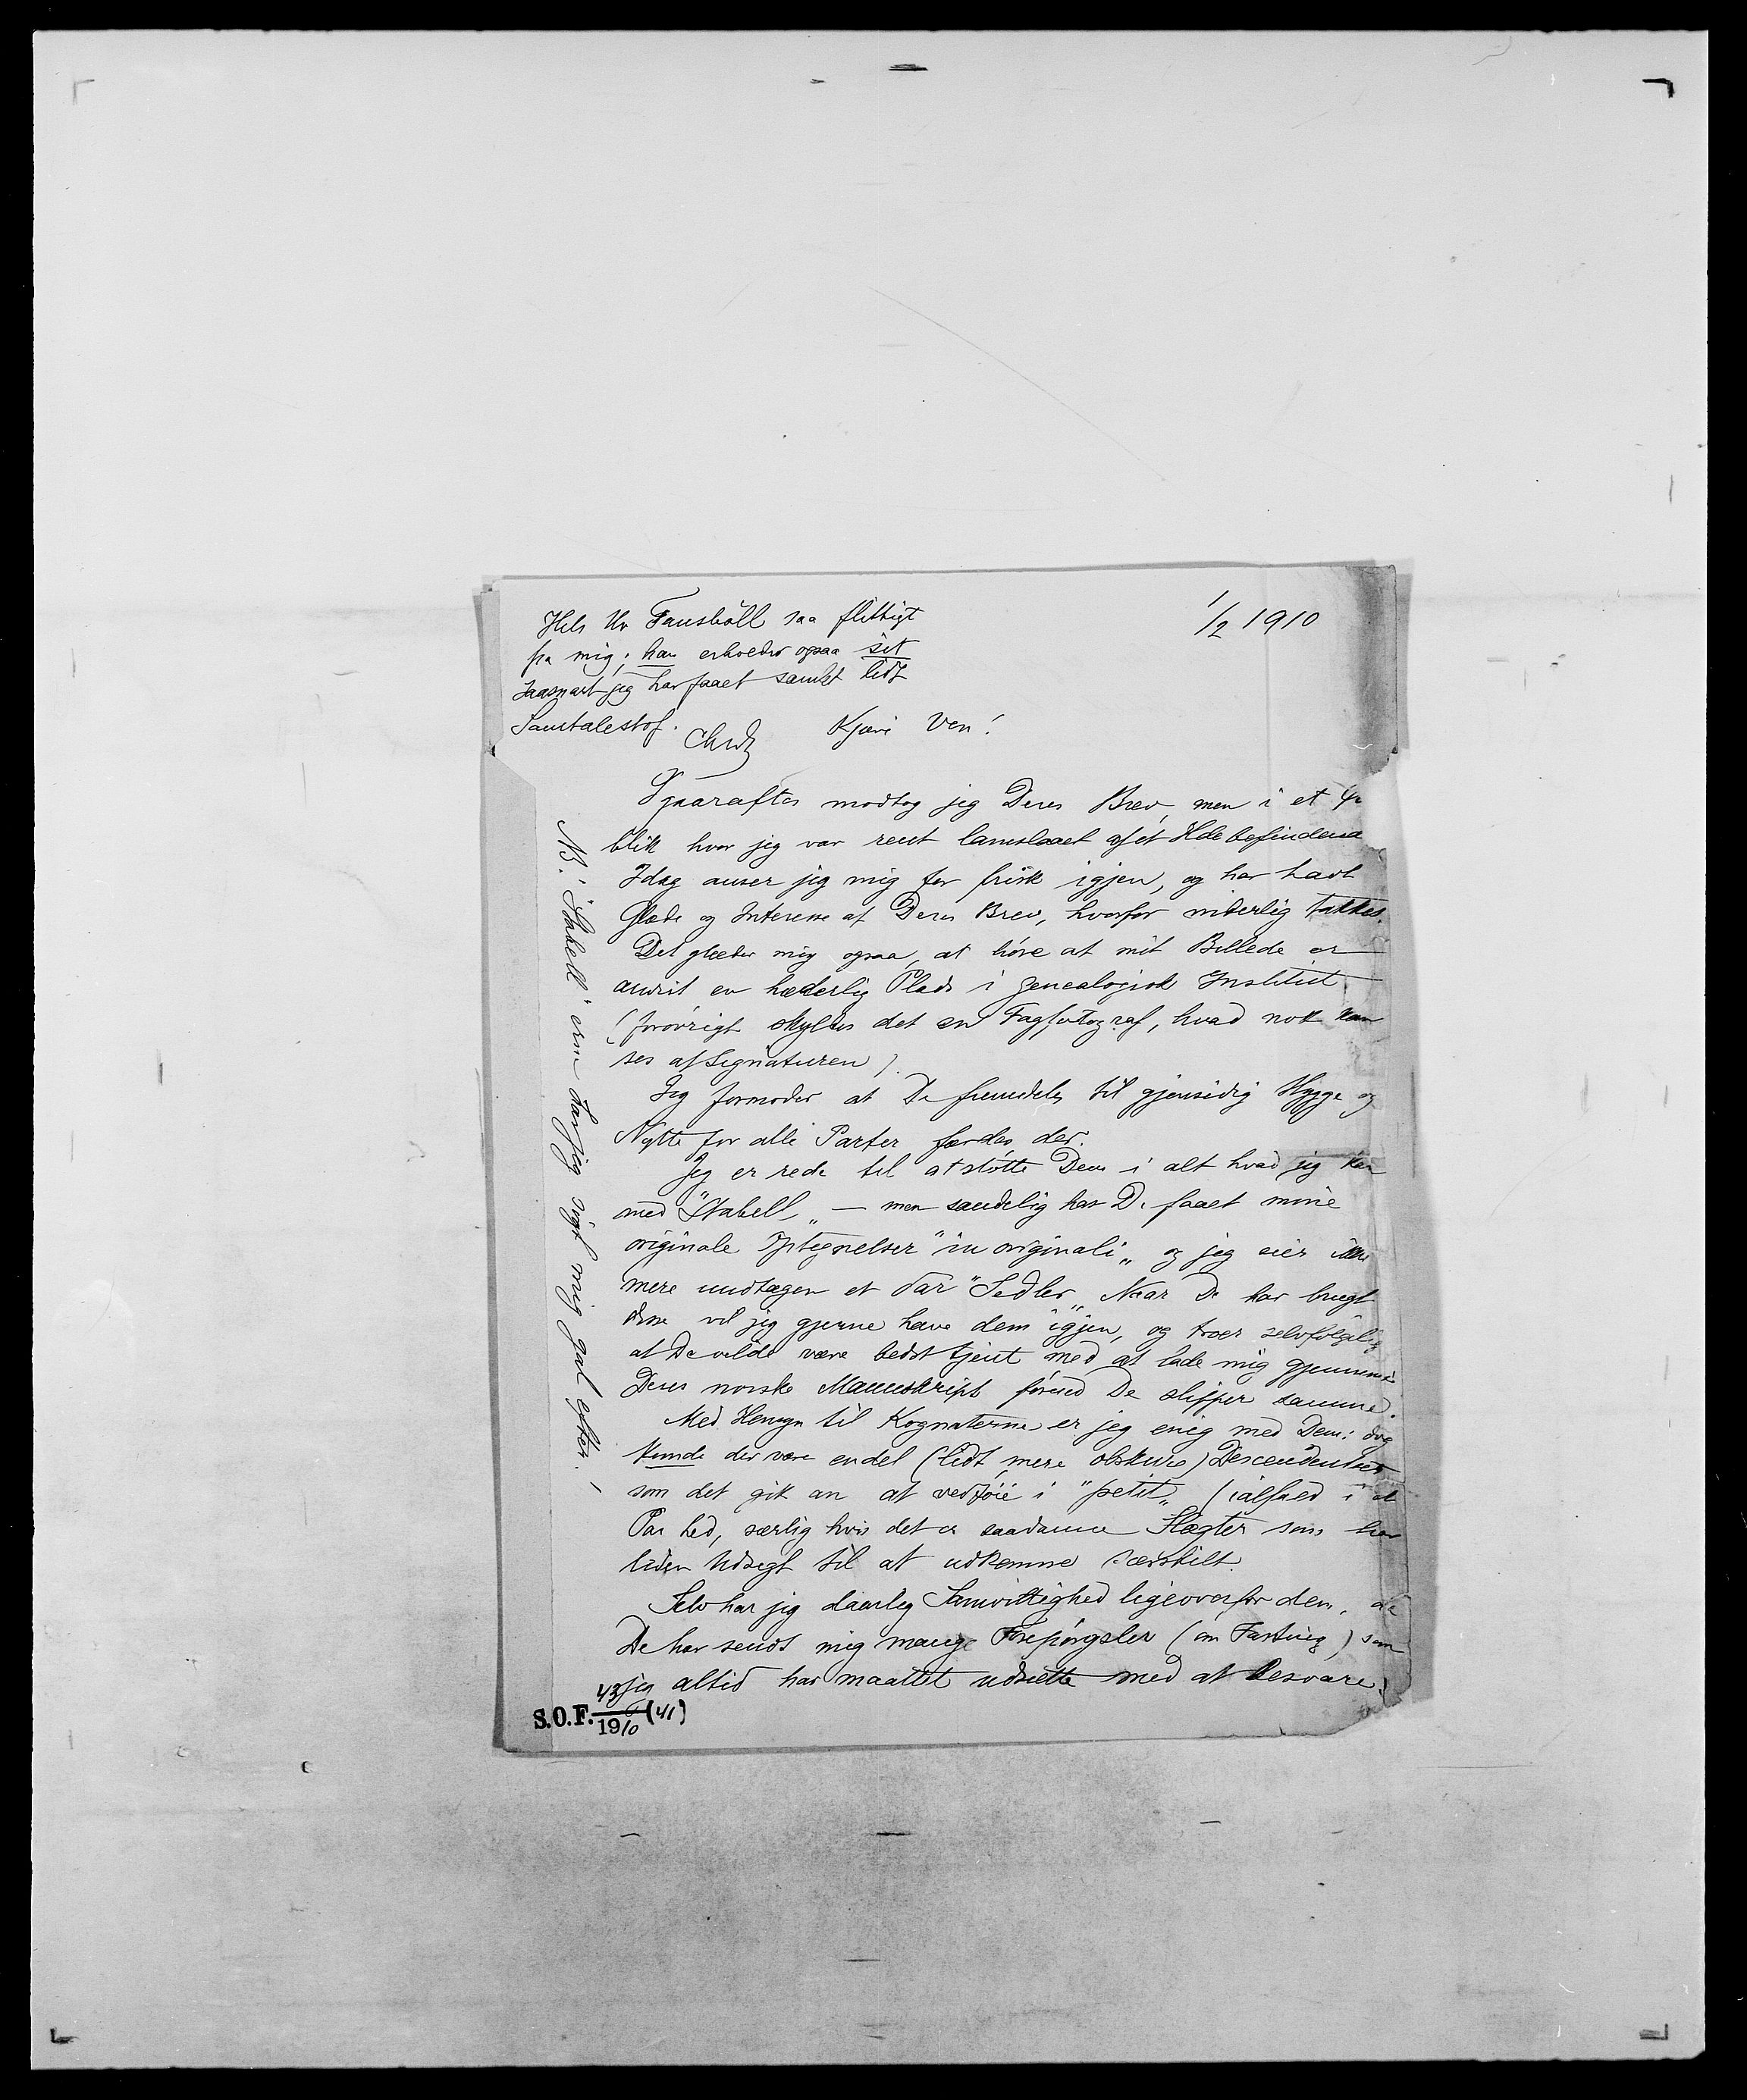 1/2 1910
Hels Hr Fausböll saa flittigt
fra mig; han erholder ogsaa sit
saasnart jeg har faaet samlet lidt
Samtalestof.
Kjære Ven!
Igaaraftes modtog jeg Deres Brev, men i et
blik hvor jeg var rent lamslaaet af et Ildebefindende
Idag anser jeg mig for frisk igjen, og har havt
Glæde og Interesse af Deres Brev, hvorfor inderlig takkes.
Det glæder mig ogsaa, at höre at mit Billede er
anvist en hæderlig Plads i genealogisk Institut
(forövrigt skyldes det en Fagfotograf, hvad nok kan
ses af Signaturen).
Jeg formoder at De fremdeles til gjensidig Hygge og
Nytte for alle Parter færdes der.
Jeg er rede til at stötte Dem i alt hvad jeg kan
med "Stabell„ — men sandelig har De faaet mine
originale Optegnelser "in originali„ og jeg eier ikke
mere undtagen et Par "Sedler„. Naar De har brugt
disse vil jeg gjerne have dem igjen, og troer selvfölgelig
at De vilde være bedst tjent med at lade mig gjennemse
Deres norske Manuskript förend De slipper samme.
Med Hensyn til Kognaterne er jeg enig med Dem: dog
kunde der være endel (lidt mere obskure) Descendenter
som det gik an at vedföie i "petit„ (ialfald i et
Par Led, særlig hvis det er saadanne Slægter som har
liden Udsigt til at udkomme særskilt.
Selv har jeg daarlig Samvittighed ligeoverfor dem, da
De har sendt mig mange Forespörgsler (om Fasting) som
jeg altid har maattet udsætte med at besvare.
NB. "Stabell" jeg mig gal efter. –
S.O.F. 43/1910 (41)